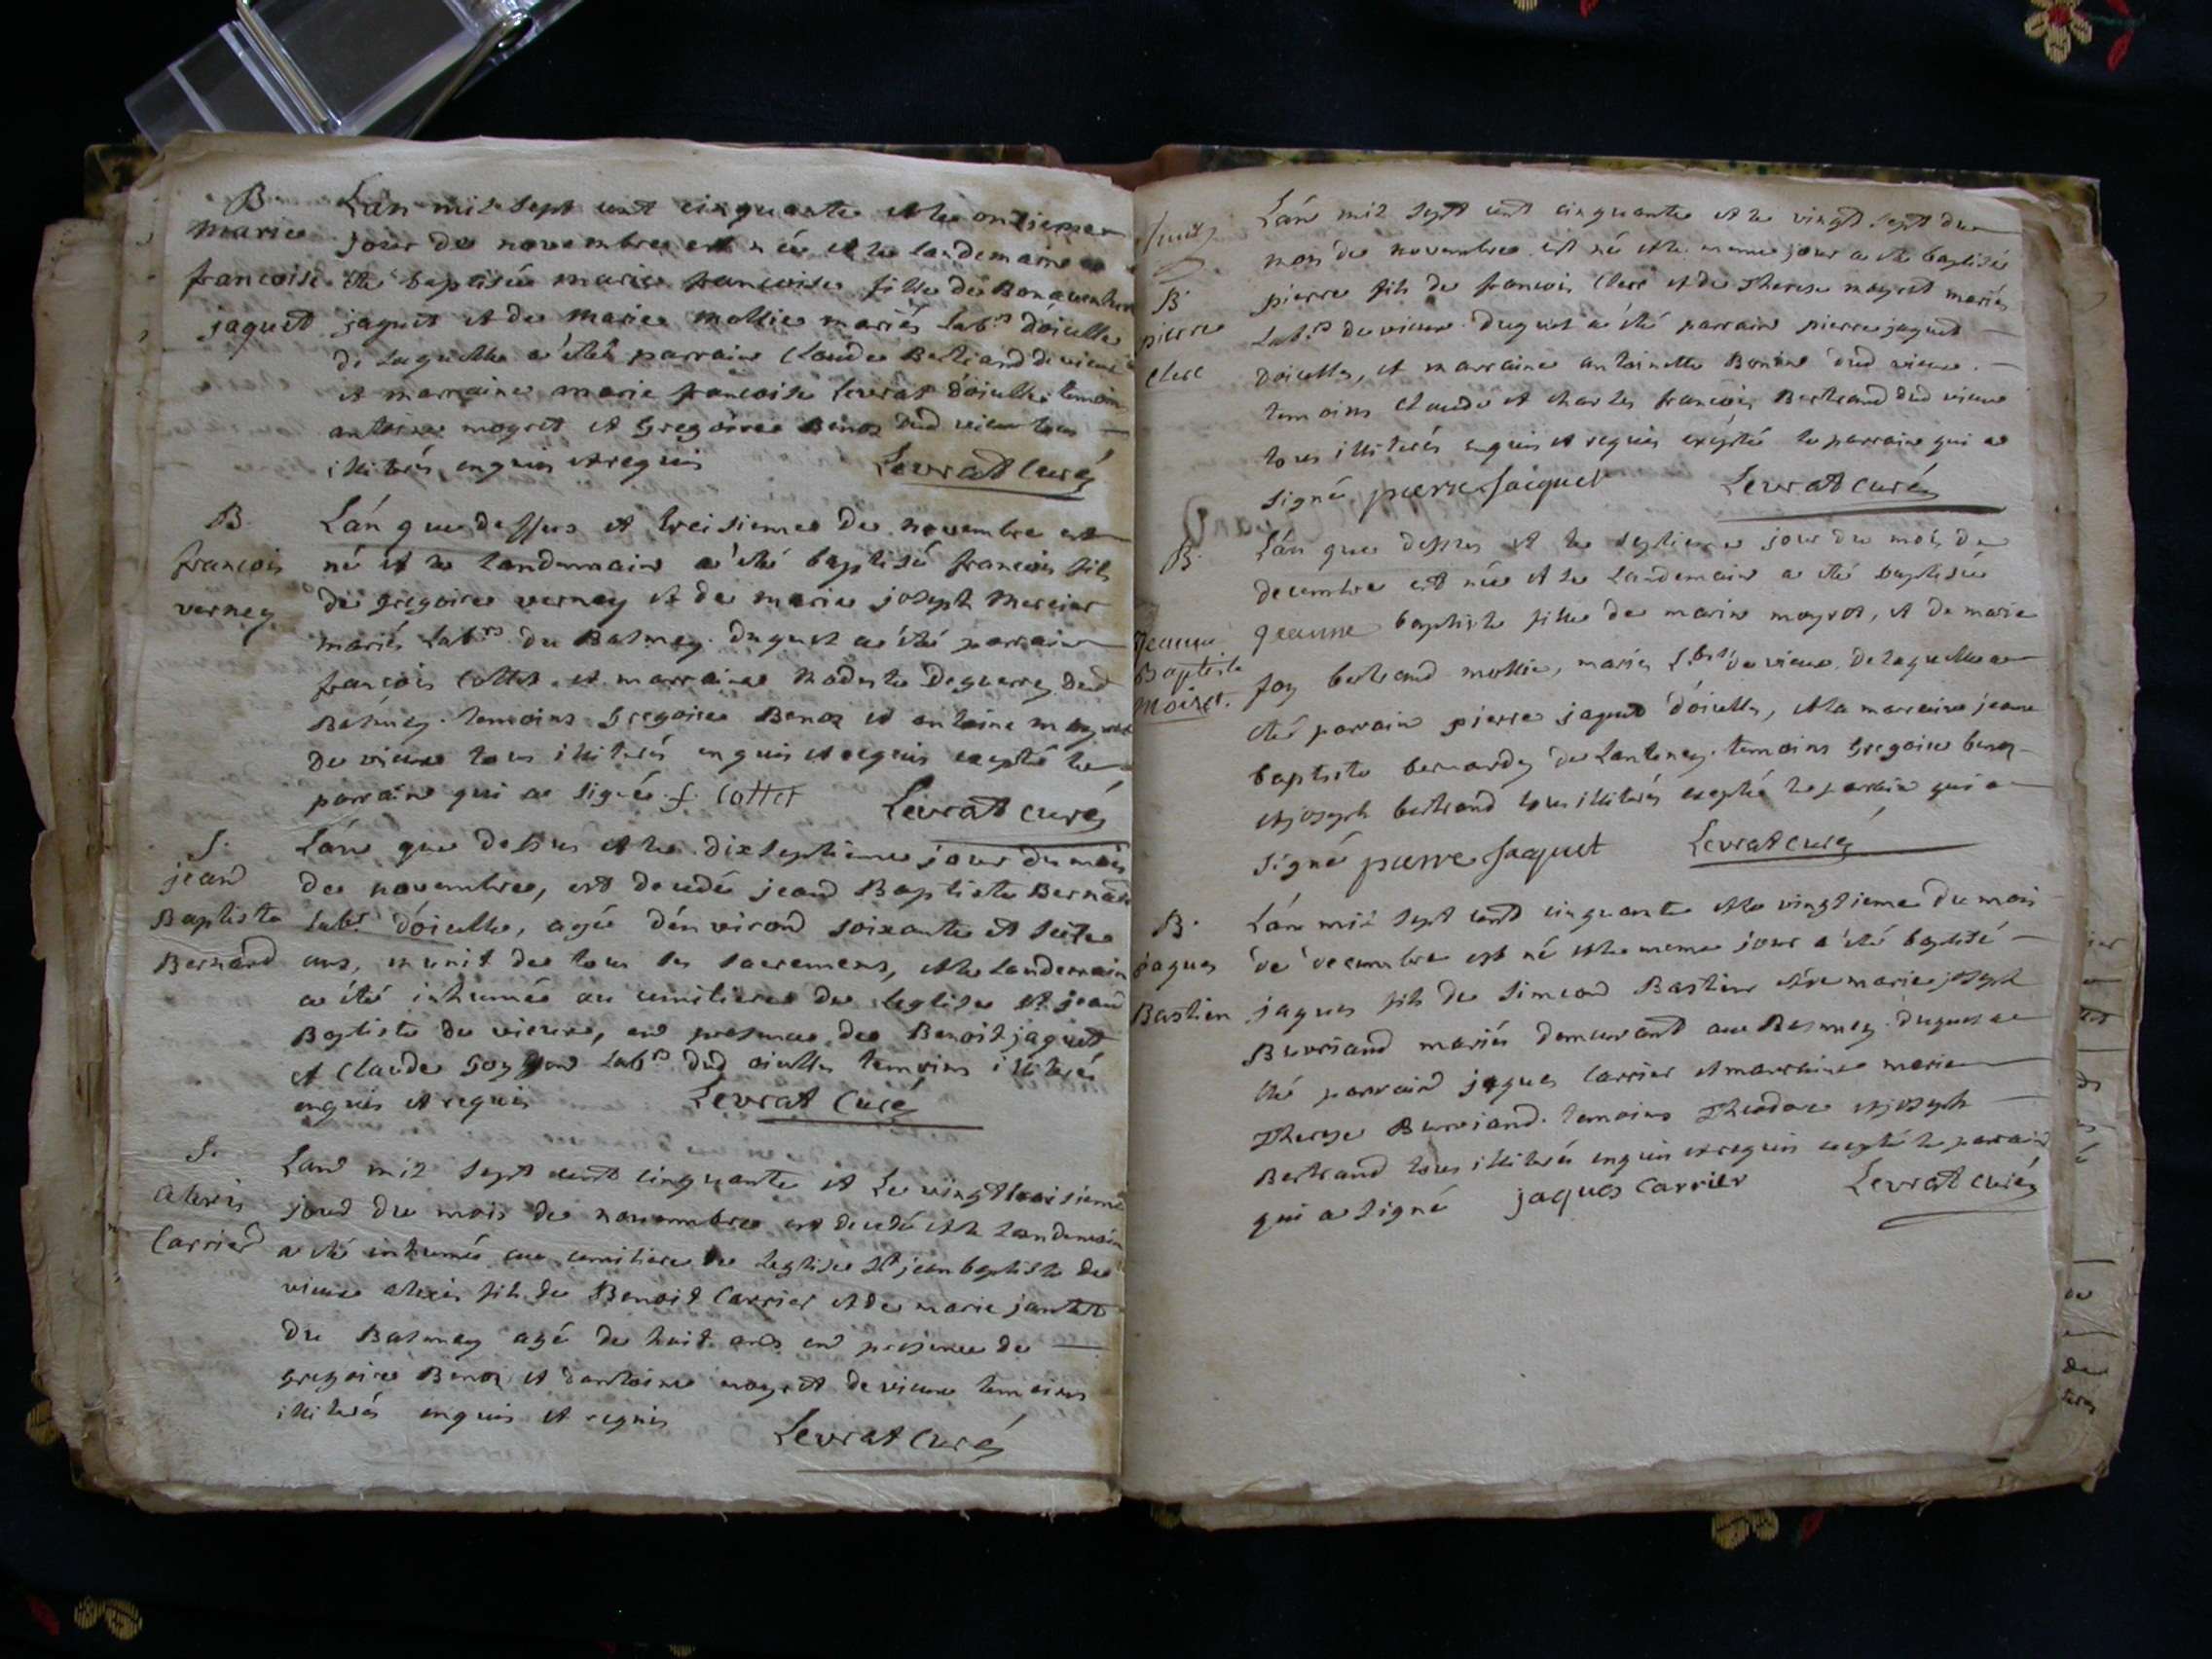 B.
marie
francoise
jaquet
Lán mil sept cent cinquante et le onzieme
jour de novembre est née et le landemain a
été baptisée marie francoise fille de Bonaventure
jaquet et de marie mollie mariés lab.rs d'oiselle
de laquelle a été parrain Claude Bertrand de vieux
et marraine marie francoise levrat temoins
antoine moyret et Gregoire Benoz dud vieu tous
illiterés enquis et requis
Levrat Curé
B.
francois
verney
Lán que dessus et treisieme de novembre est
né et le landemain a été baptisé francois fils
de gregoire verney et de marie joseph Mercier
mariés Lab.rs du Balmey. duquel a été parrain
francois Cottet et marraine dud
Balmey. temoins Gregoire Benoz et antoine moyret
de vieux tous illiterés enquis et requis excepté le
parrain qui a signé. f. Cottet
Levrat curé
S.
jean
Baptiste
Bernard
Lán que dessus et le dixseptieme jour du mois
de novembre, est decedé jean Baptiste Bernard
lab.r agé d'environ soixante et seize
ans, munit de tous les sacremens, et le landemain
a été inhumé au cemitiere de leglise st jean
Baptiste de vieux, en presence de Benoit jaquet
et Claude lab.rs dud temoins illiterés
enquis et requis
Levrat Curé
S.
alexis
Carrier
Lan mil sept cent cinquante et Le vingt troisieme
jour du mois de novembre est decedé et le landemain
a été inhumé au cemitiere de leglise st jean baptiste de
vieux alexis fils de Benoit Carrier et de marie jantet
du Balmey agé de huit ans en presence de
gregoire Benoz et d'antoine moyret de vieux temoins
illiterés enquis et requis
Levrat Curé
B.
pierre
Clerc
Lán mil sept cent cinquante et le vingt sept du
mois de novembre est né et le meme jour a été baptisé
pierre fils de francois Clerc et de Therese moyret mariés
Lab.rs de vieux. duquel a été parrain pierre jaquet
et marraine antoinette dud vieux.
temoins Claude et charles francois Bertrand dud vieux
tous illiterés enquis et requis excepté le parrain qui a
signé pierre Jaquet
Levrat curé
B.
Jeanne
Baptiste
Moiret.
Lán que dessus et le septieme jour du mois de
decembre est née et le Landemain a été baptisée
Jeanne baptiste fille de marin moyret, et de marie
foy bertrand mollie, mariés de vieux de laquelle a
été parrain pierre jaquet et la marraine jeane
baptiste bernardy de Lanteney. temoins Gregoire benoz
et joseph bertrand tous illiterés excepté le parrain qui a
signé pierre Jaquet
Levrat curé
B.
jaques
Bastien
Lán mil sept cent cinquante et le vingtieme du mois
de decembre est né et le meme jour a été baptisé
jaques fils de Simeond Bastien et de marie joseph
mariés demeurant au Balmey. duquel a
été parrain jaques Carrier et marraine marie
Therese temoins Theodore et joseph
Bertrand tous illiterés enquis et requis excepté le parrain
qui a signé jaques Carrier
Levrat curé